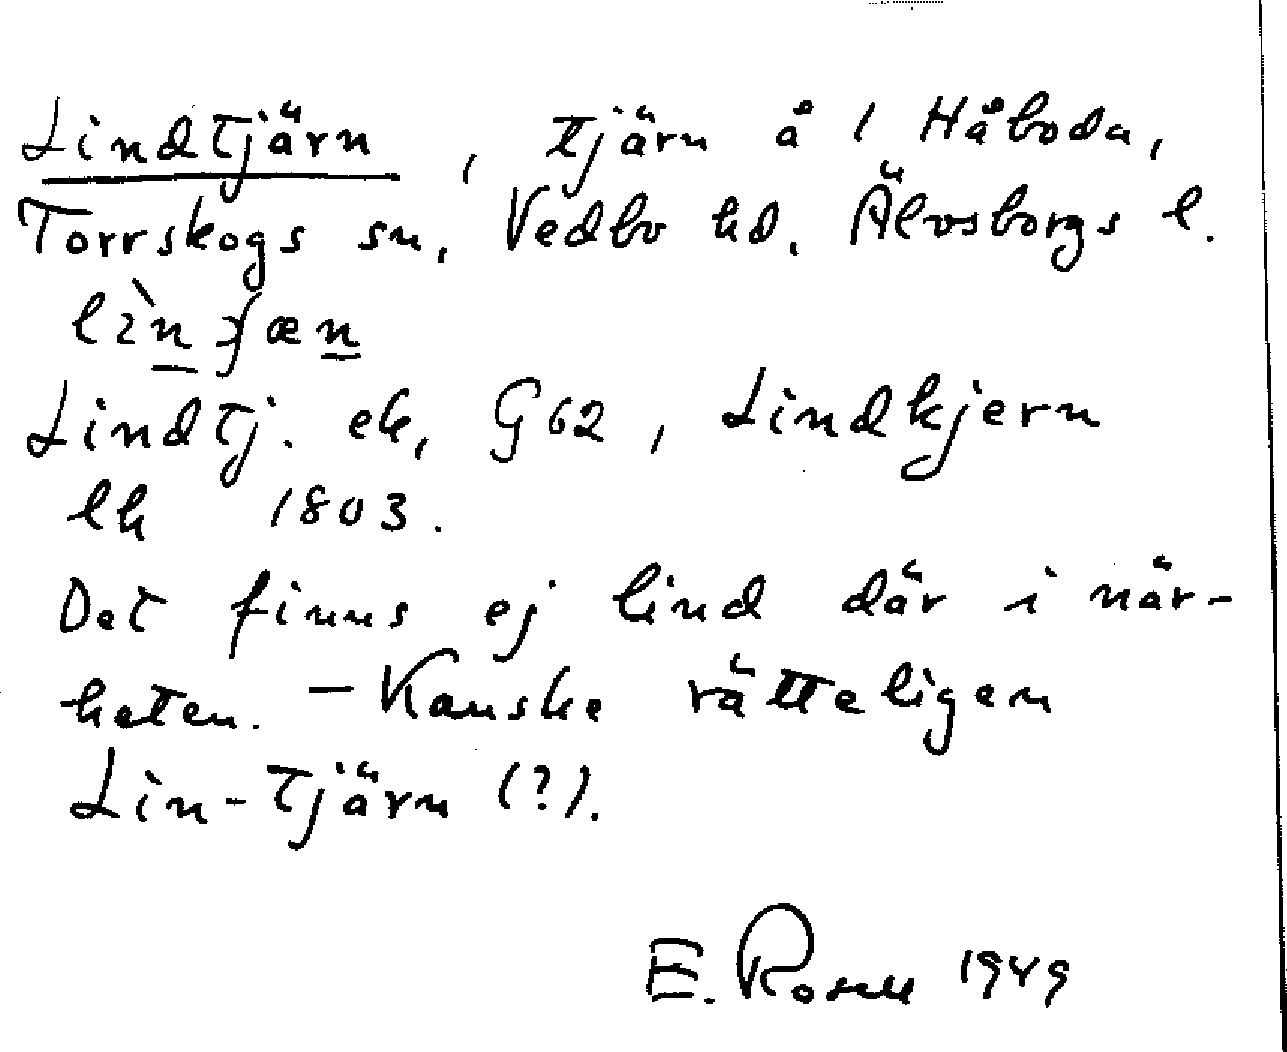 Lindtjärn, tjärn å 1 Håboda,
Torrskogs sn, Vedbo hd. Älvsborgs l.
Lindtj. ek, G62, Lindkjern
lh 1803.
Det finns ej lind där i när-
heten. – Kanske rätteligen
Lin-tjärn (?).
E. Rosell 1949